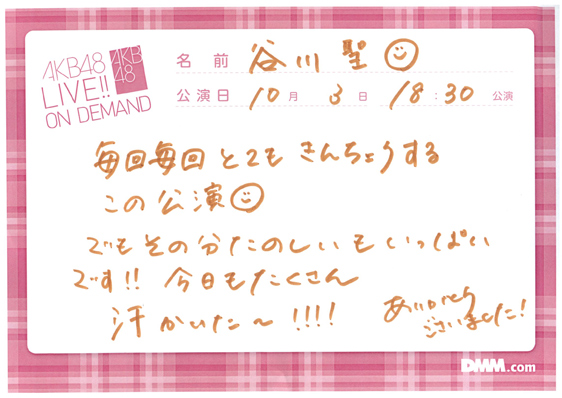 AKB48
LIVE!!
ON DEMAND
AKB
48
名前 谷川聖
公演日 10月 3日 18:30 公演
毎回毎回とてもきんちょうする
この公演
でもその分たのしいもいっぱい
です!! 今日もたくさん
汗かいた〜!!!!
ありがとう
ございました!
DMM.com